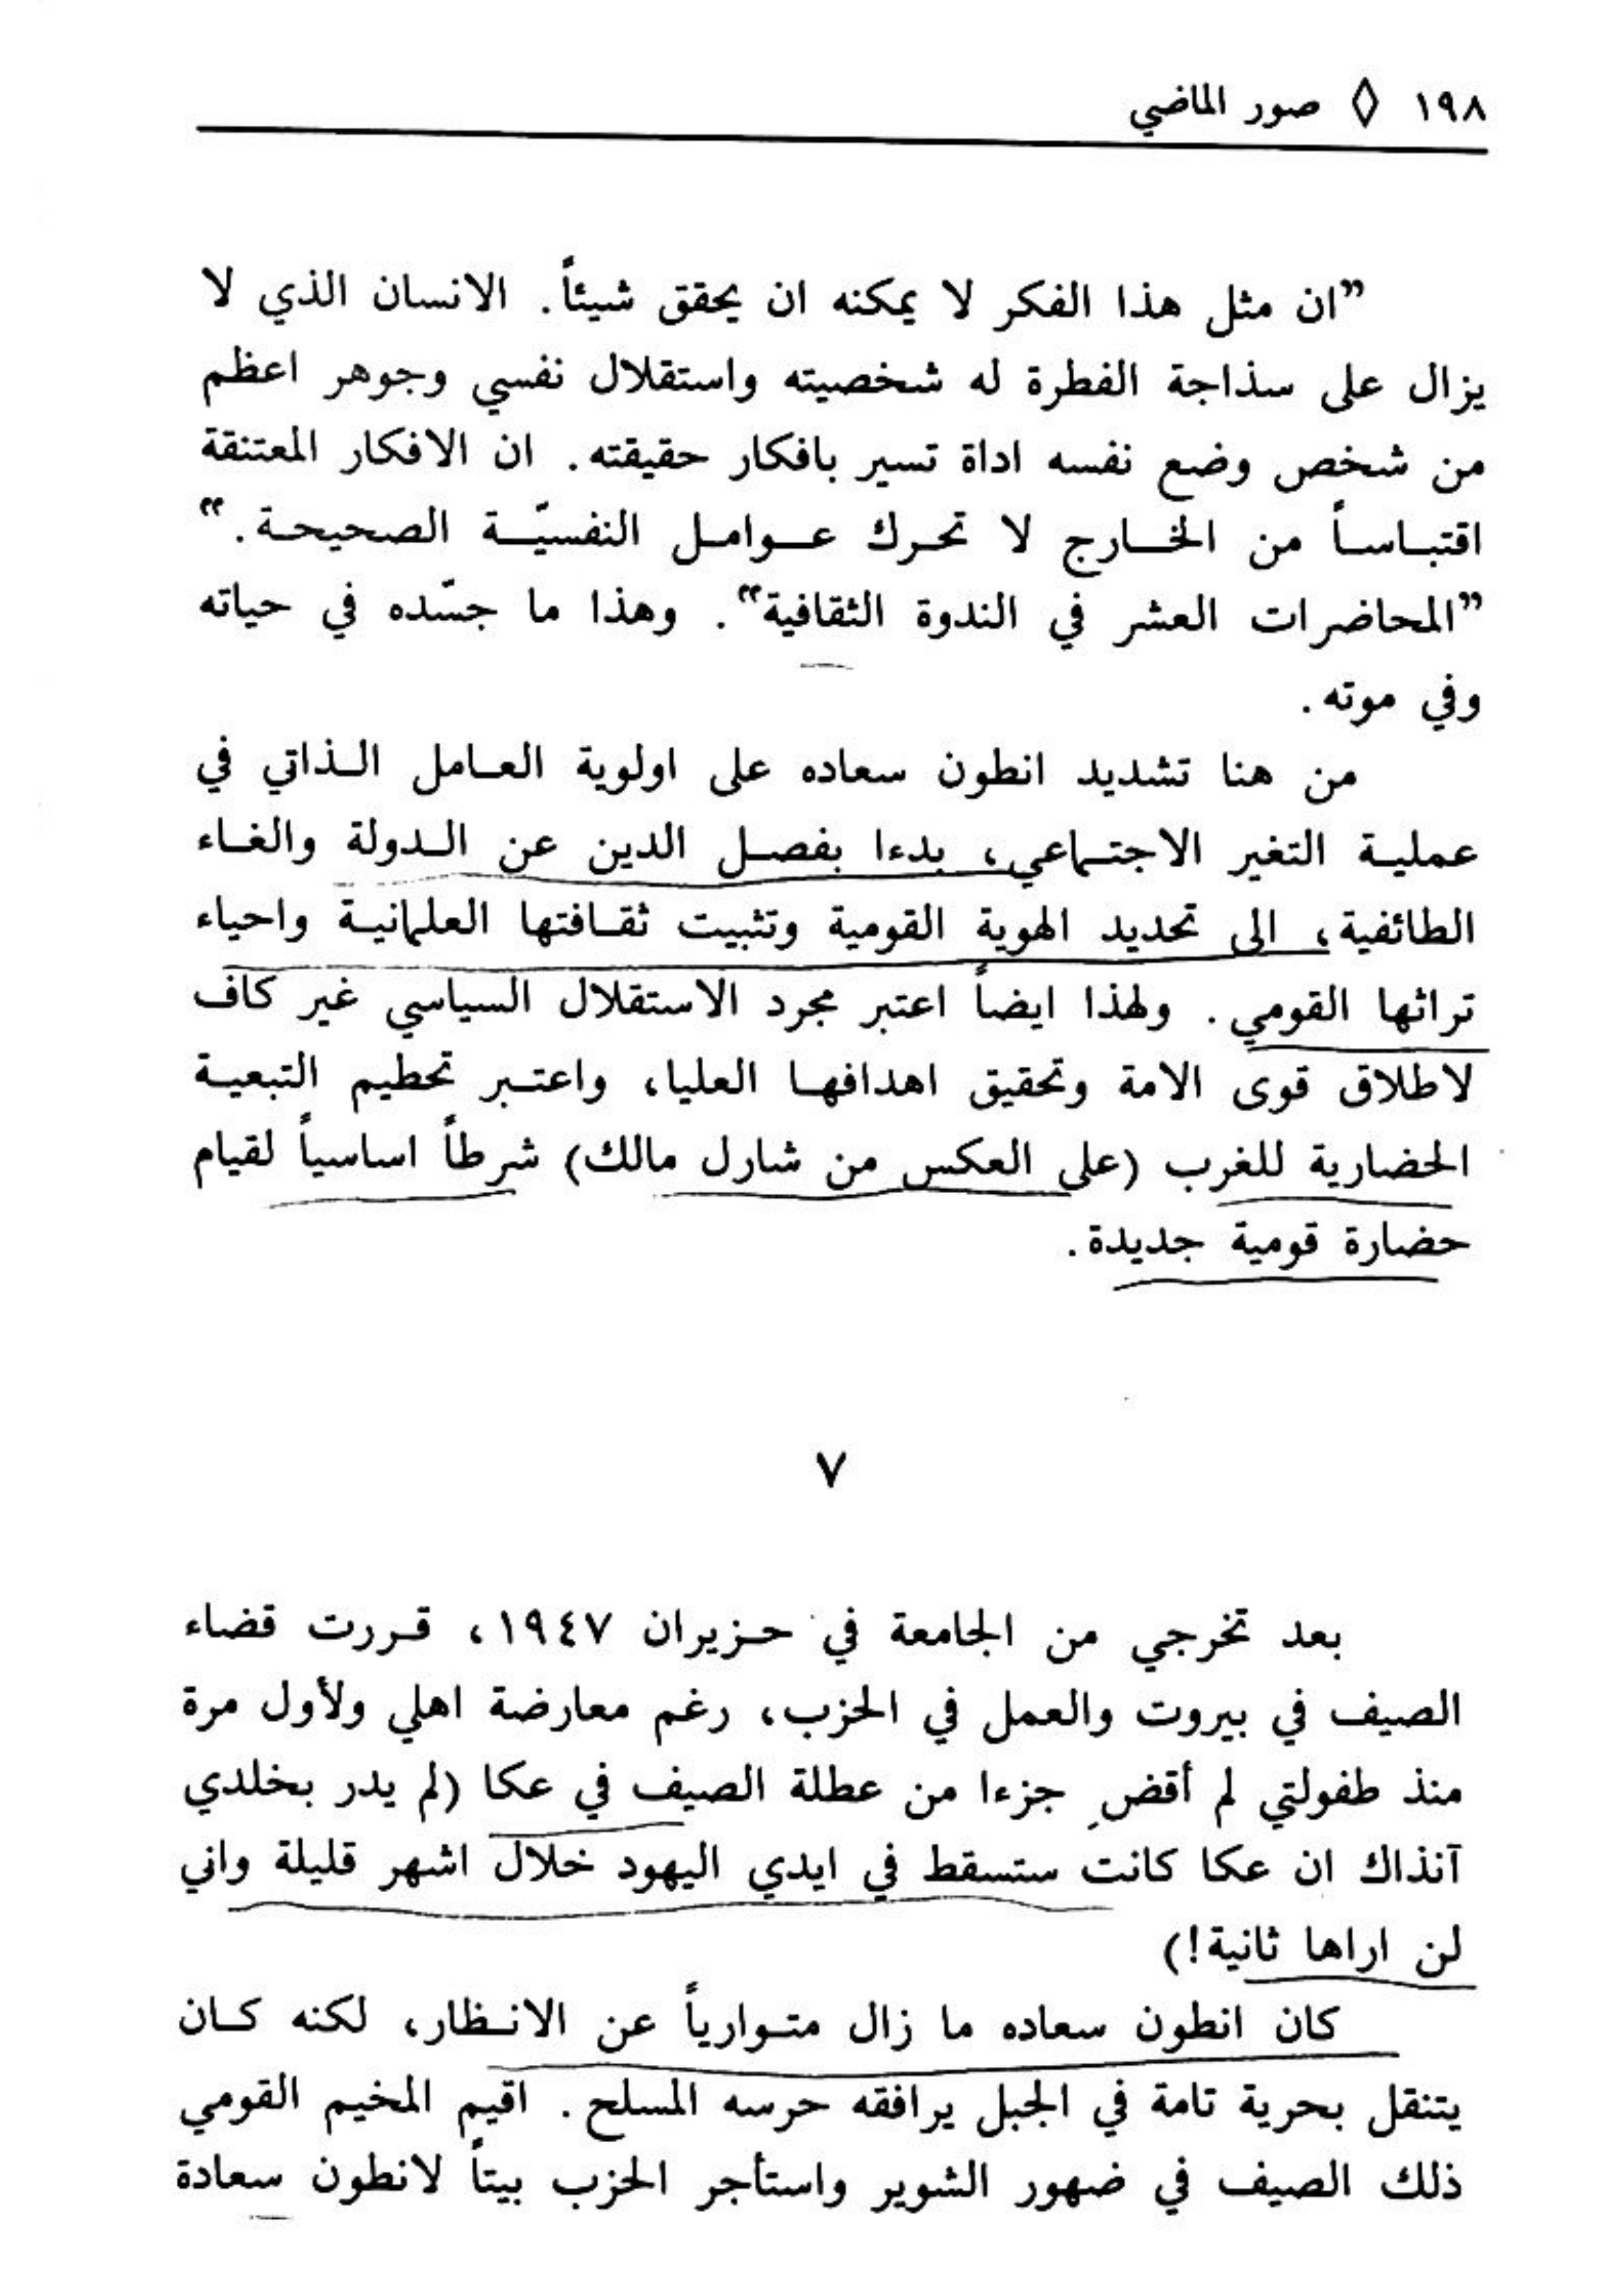 ١٩٨ ◊ صور الماضي
”ان مثل هذا الفكر لا يمكنه ان يحقق شيئاً. الانسان الذي لا
يزال على سذاجة الفطرة له شخصيته واستقلال نفسي وجوهر اعظم
من شخص وضع نفسه اداة تسير بافكار حقيقته. ان الافكار المعتنقة
اقتباساً من الخارج لا تحرك عوامل النفسيّة الصحيحة.“
”المحاضرات العشر في الندوة الثقافية“. وهذا ما جسّده في حياته
وفي موته.
من هنا تشديد انطون سعاده على اولوية العامل الذاتي في
عملية التغير الاجتماعي، بدءا بفصل الدين عن الدولة والغاء
الطائفية، الى تحديد الهوية القومية وتثبيت ثقافتها العلمانية واحياء
تراثها القومي. ولهذا ايضاً اعتبر مجرد الاستقلال السياسي غير كاف
لاطلاق قوى الامة وتحقيق اهدافها العليا، واعتبر تحطيم التبعية
الحضارية للغرب (على العكس من شارل مالك) شرطاً اساسياً لقيام
حضارة قومية جديدة.
٧
بعد تخرجي من الجامعة في حزيران ١٩٤٧، قررت قضاء
الصيف في بيروت والعمل في الحزب، رغم معارضة اهلي ولأول مرة
منذ طفولتي لم أقضِ جزءا من عطلة الصيف في عكا (لم يدر بخلدي
آنذاك ان عكا كانت ستسقط في ايدي اليهود خلال اشهر قليلة واني
لن اراها ثانية!)
كان انطون سعاده ما زال متوارياً عن الانظار، لكنه كان
يتنقل بحرية تامة في الجبل يرافقه حرسه المسلح. اقيم المخيم القومي
ذلك الصيف في ضهور الشوير واستأجر الحزب بيتاً لانطون سعادة